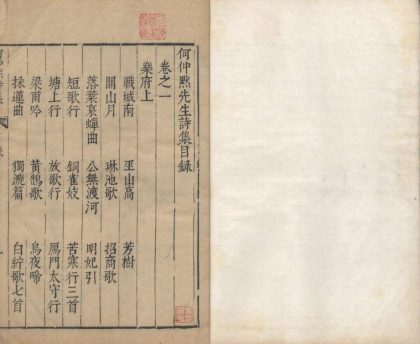 何仲默先生詩集目錄
卷之一
樂府上
戰城南 巫山高 芳樹
關山月 琳池歌 招商歌
落葉哀蟬曲 公無渡河 明妃引
短歌行 銅雀妓 苦寒行三首
塘上行 放歌行 鴈門太守行
梁甫吟 黃鵠歌 烏夜啼
採蓮曲 獨漉篇 白紵歌七首